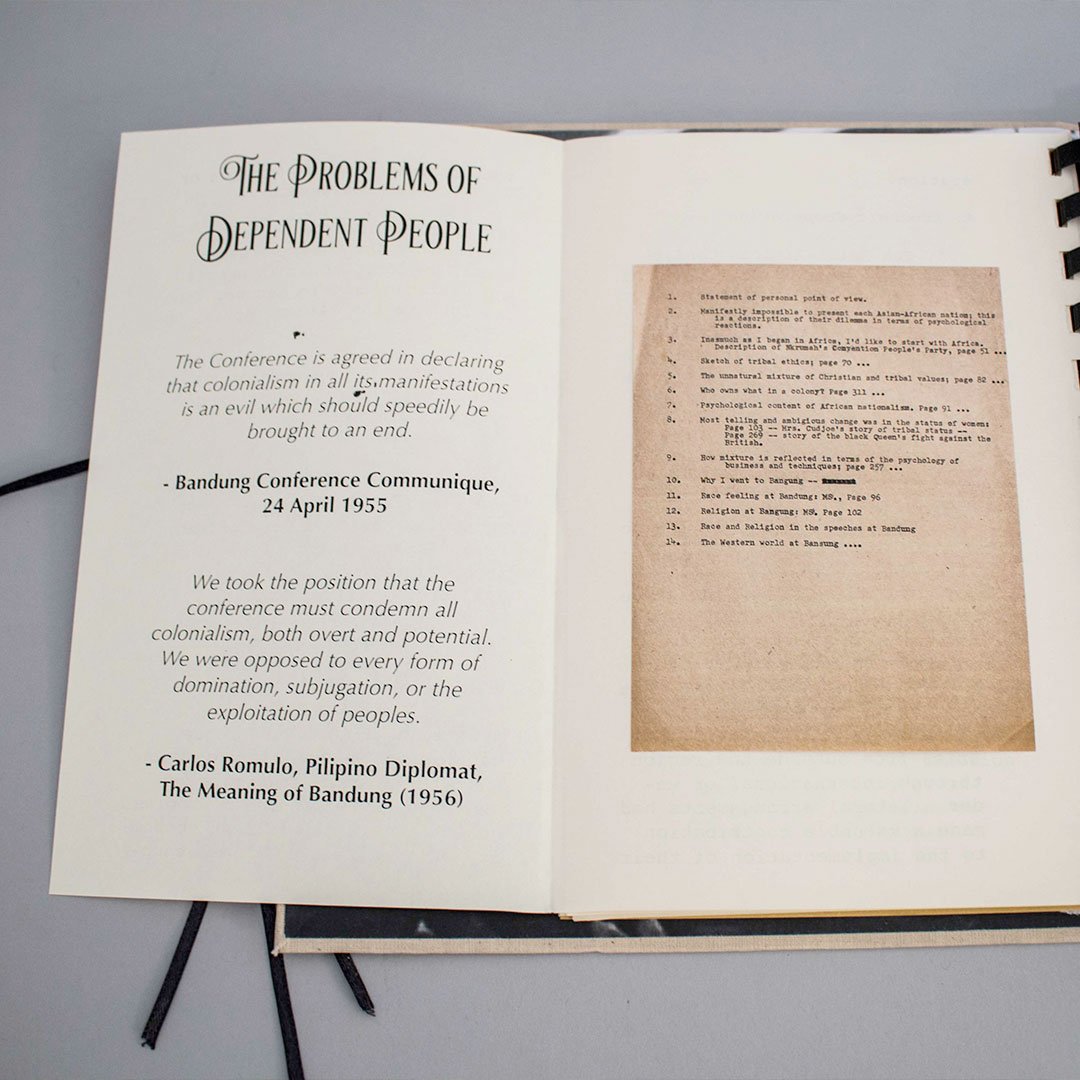 The Problems of
Dependent People
The Conference is agreed in declaring
that colonialism in all its manifestations
is an evil which should speedily be
brought to an end.
- Bandung Conference Communique,
24 April 1955
We took the position that the
conference must condemn all
colonialism, both overt and potential.
We were opposed to every form of
domination, subjugation, or the
exploitation of peoples.
- Carlos Romulo, Pilipino Diplomat,
The Meaning of Bandung (1956)
1. Statement of personal point of view.
2. Manifestly impossible to present each Asian-African nation; this
is a description of their dilemma in terms of psychological
reactions.
3. Inasmuch as I began in Africa, I'd like to start with Africa.
Description of Nkrumah's Convention People's Party, page 51 ...
4. Sketch of tribal ethics; page 70 ...
5. The unnatural mixture of Christian and tribal values; page 82 ...
6. Who owns what in a colony? Page 311 ...
7. Psychological content of African nationalism. Page 91 ...
8. Most telling and ambigious change was in the status of women:
Page 103 -- Mrs. Cudjoe's story of tribal status --
Page 269 -- story of the black Queen's fight against the
British.
9. How mixture is reflected in terms of the psychology of
business and techniques; page 257 ...
10. Why I went to Bangung --
11. Race feeling at Bandung: MS., Page 96
12. Religion at Bangung: MS. Page 102
13. Race and Religion in the speeches at Bandung
14. The Western world at Bansung ....